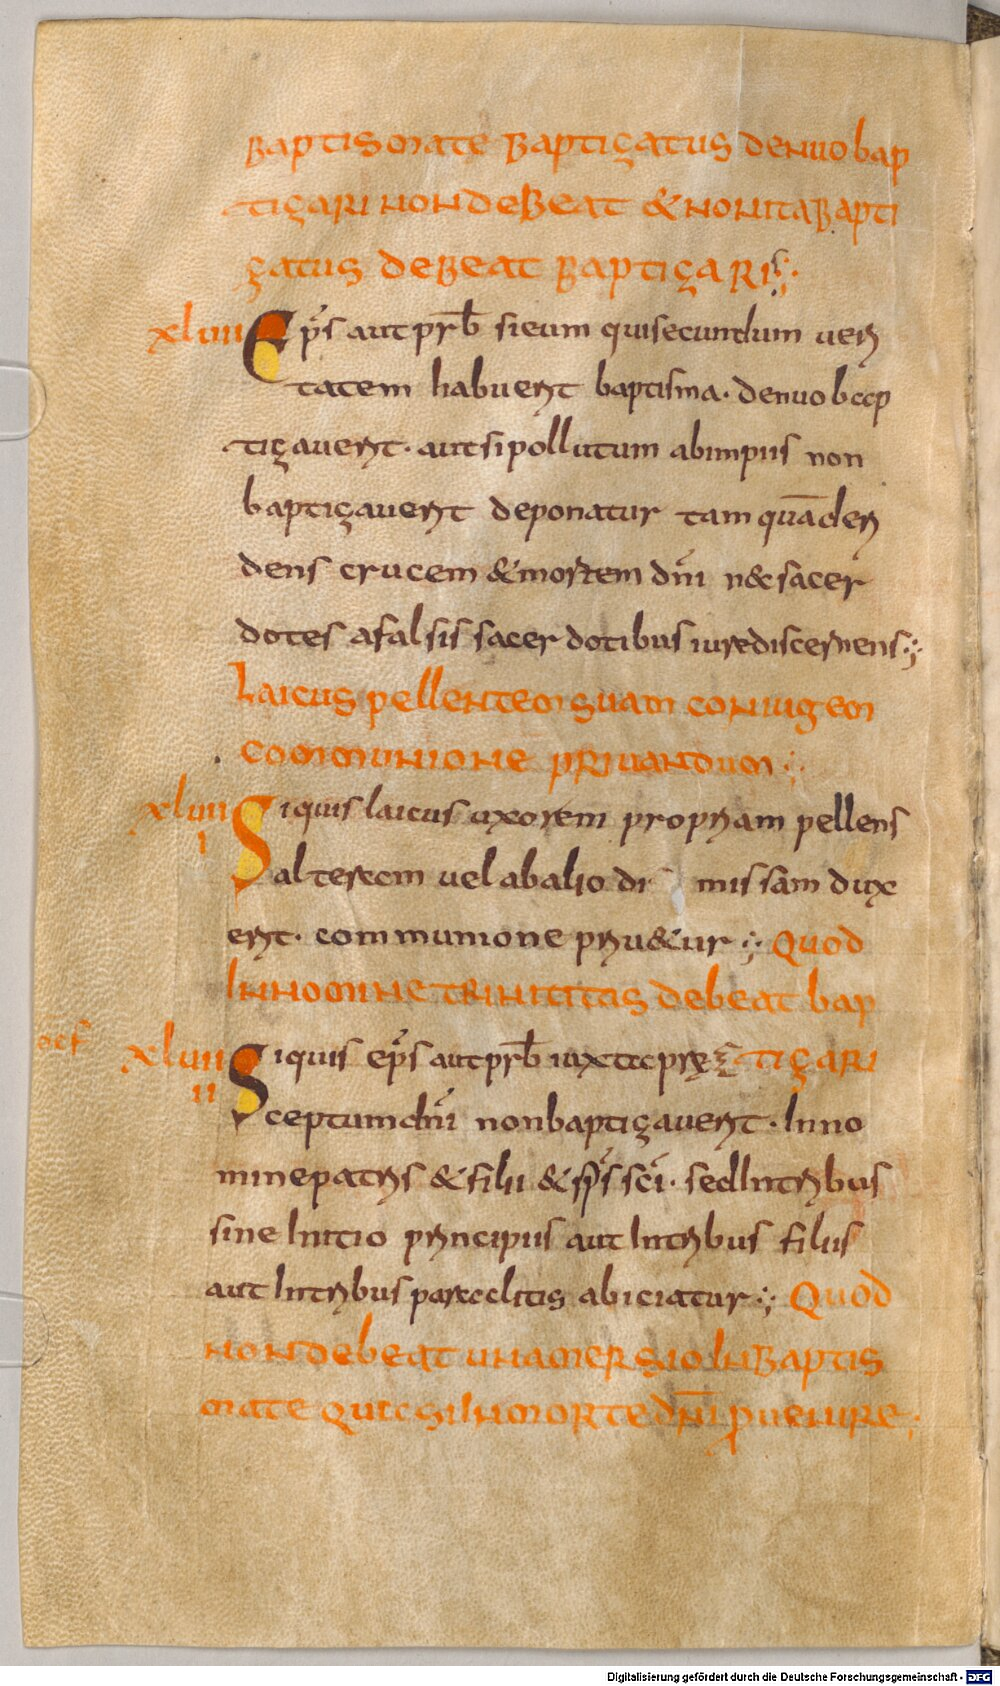 baptismate baptiçatus denuo bap
tiçari non debeat & non ita bapti
çatus debeat baptiçari
xlvii Ep̃s aut prb̄ si eum qui secundum veri
tatem habuerit baptisma · denuo bap
tiçauerit · aut si pollutum ab impiis non
baptiçauerit deponatur tamquā deri
dens crucem & mortem dn̄i n& sacer
dotes a falsis sacerdotibus iure discernens
Laicus pellentem suam coniugem
communione priuandum
xlviii Siquis laicus uxorem propriam pellens
alteram uel ab alio di missam dux
erit · communione priu&ur Quod
In nomine trinitatis debeat bap
xlviiii Siquis ep̃s aut prb̄ iuxta prę tiçari
ceptum dn̄i non baptiçauerit · In no
mine patris & filii & sp̃s sc̄i · sed In tribus
sine Initio principiis aut In tribus filiis
aut In tribus paraclitis abiciatur Quod
non debeat una mersio In baptis
mate quasi In morte dn̄i puenire
Digitalisierung gefördert durch die Deutsche Forschungsgemeinschaft - DFG